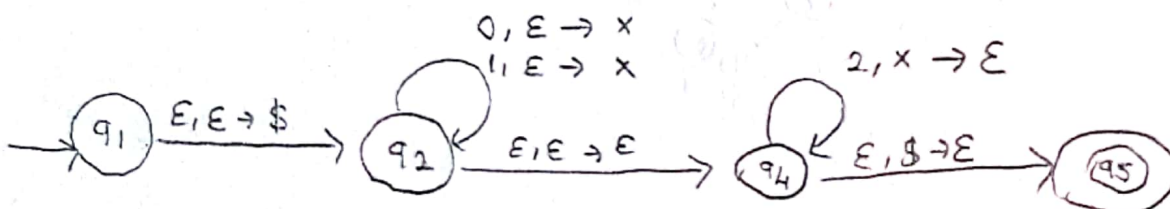 0, ε → x
1, ε → x
2, x → ε
q1
ε, ε → $
q2
ε, ε → ε
q4
ε, $ → ε
q5